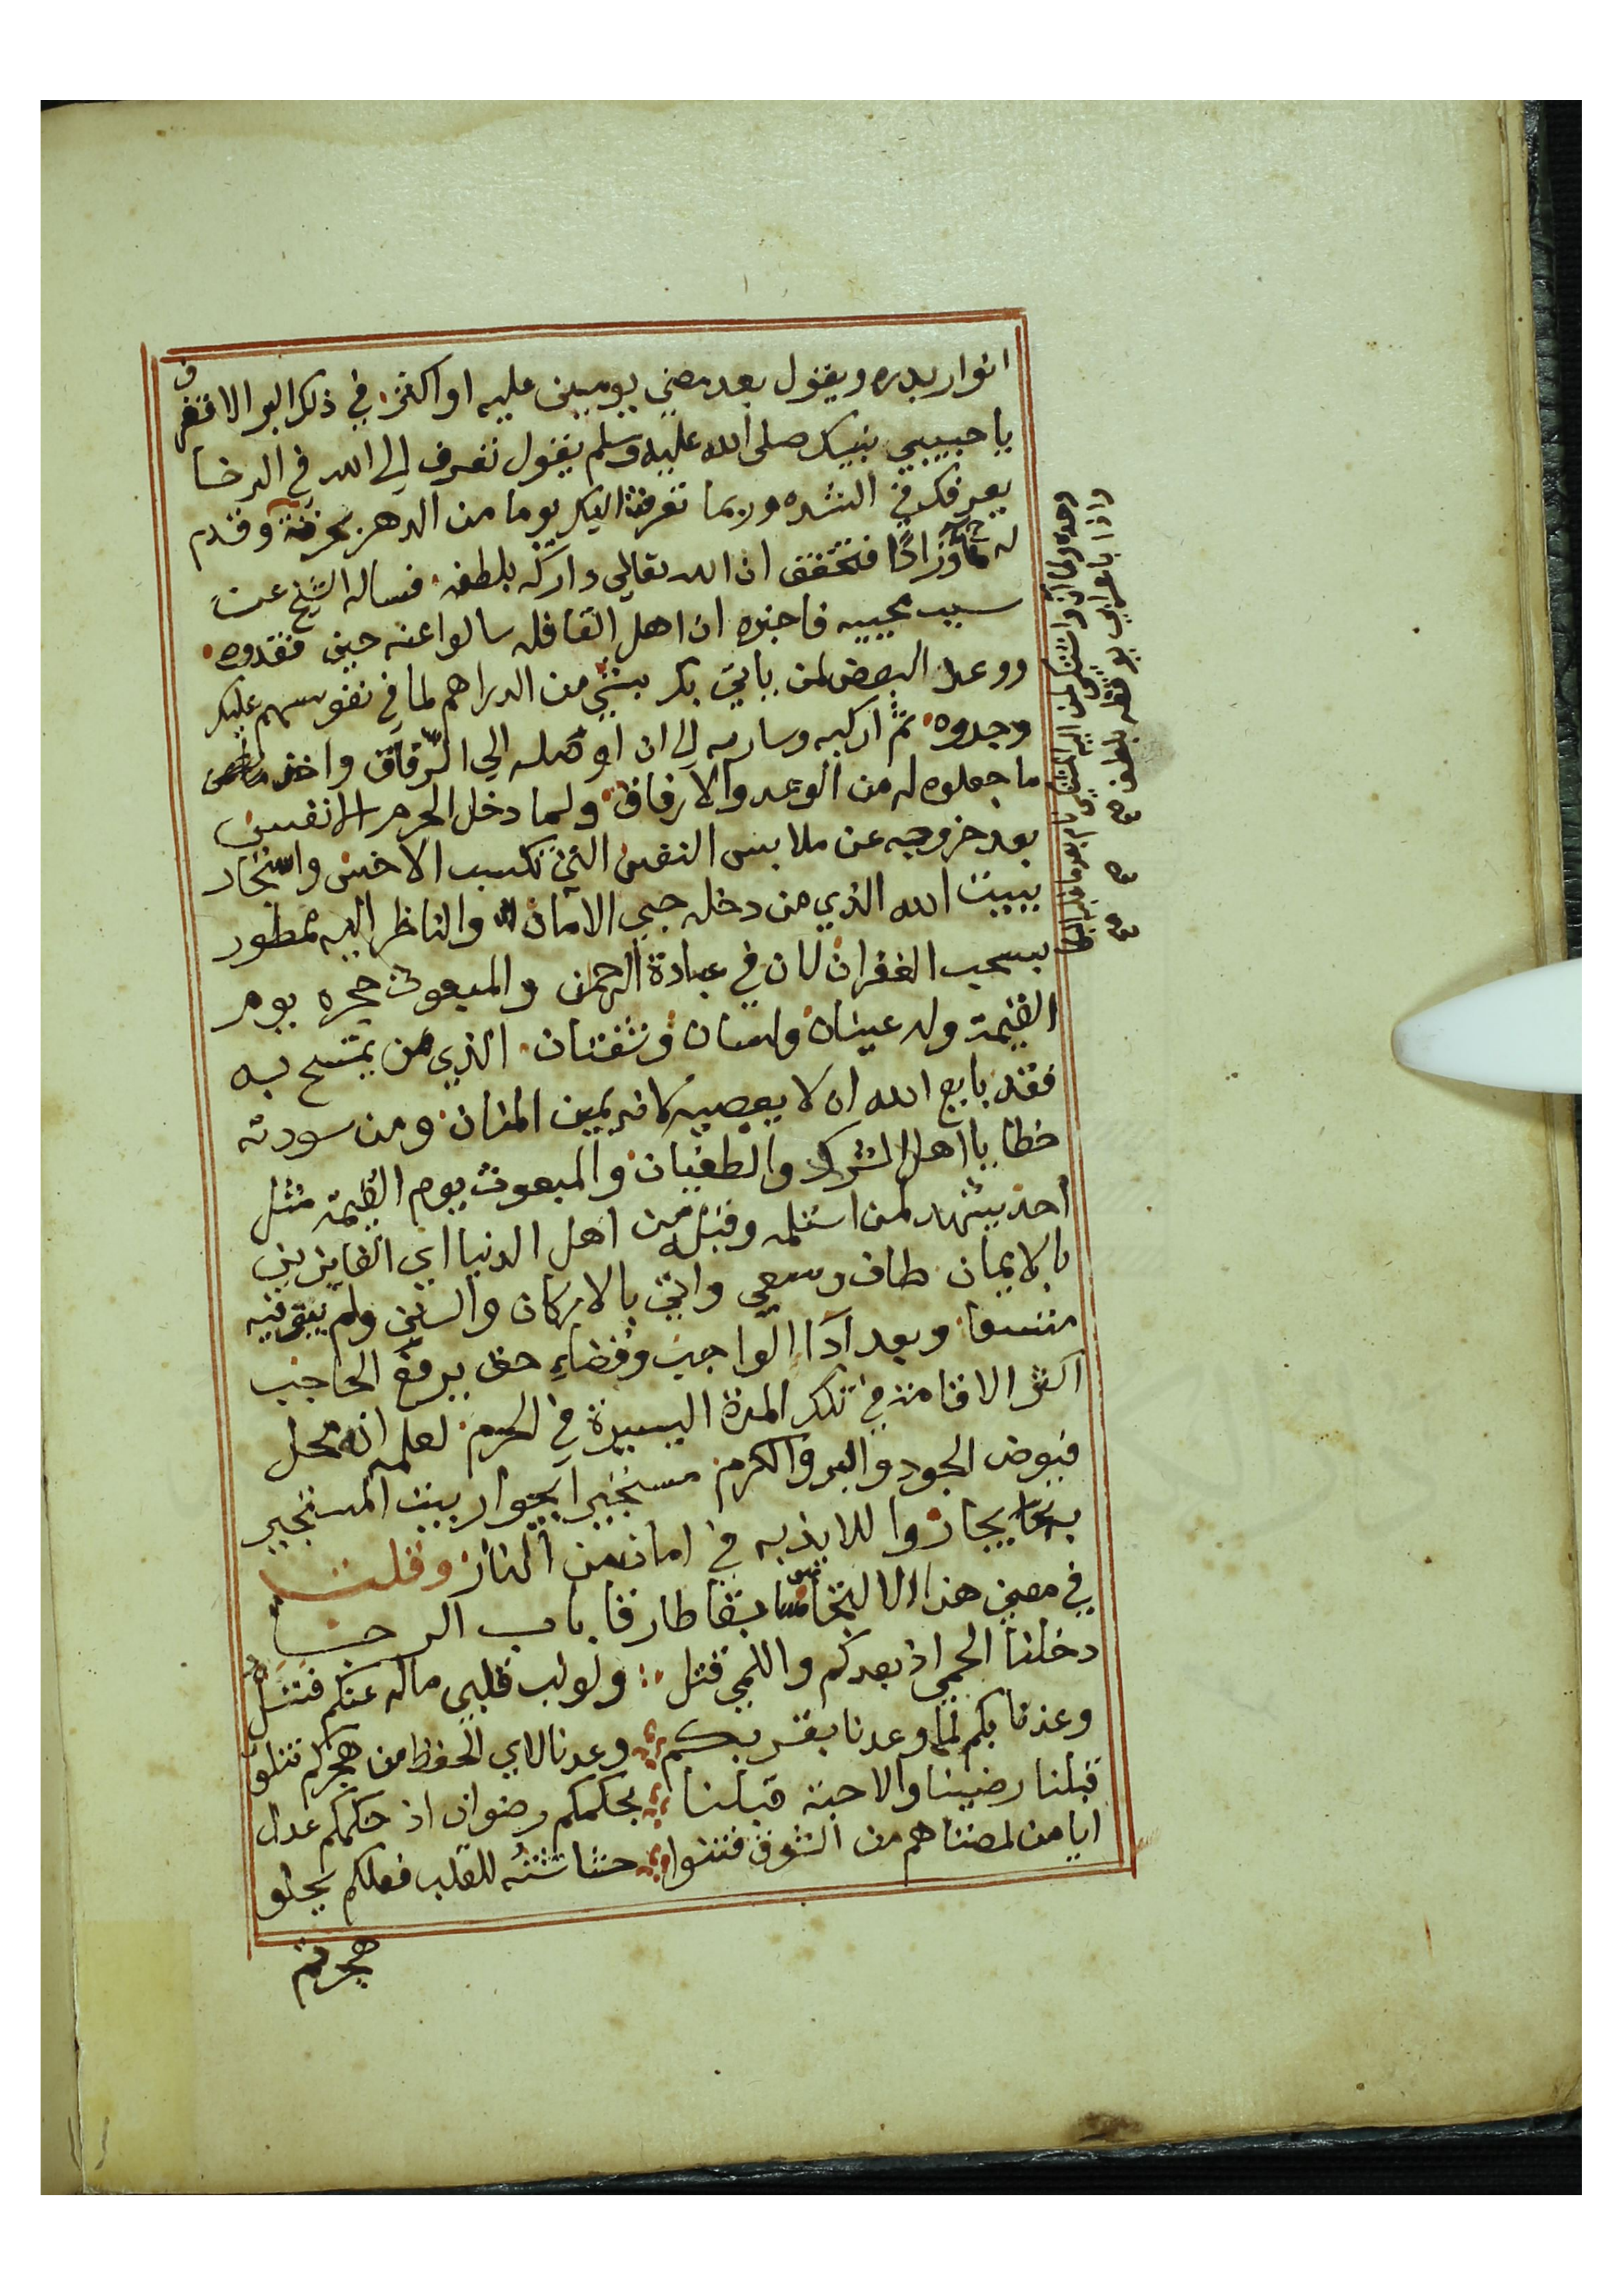 انوار بدره ويقول بعد مضي يومين عليه او اكثر في ذلك البر الاقفر
يا حبيبي نبيك صلى الله عليه وسلم يقول تعرف الى الله في الرخا
يعرفك في الشده وربما تعرفت اليك يوما من الدهر بخرقة وقدم
له ماً وزاداً فتحقق ان الله تعالي داركه بلطفه فساله الشيخ عن
سبب مجييه فاخبره ان اهل القافله سالوا عنه حين فقدوه
ووعد البعض لمن ياتي بك بشي من الدراهم لما في نفوسهم عليك
وجدوه ثم اركبه وسار به الي ان اوصله الي الرفاق واخذ
ما جعلوه له من الوعد والارفاق ولما دخل الحرم الانفس
بعد خروجه عن ملابس النفس التي تكسب الاخس واستجار
ببيت الله الذي من دخله حبي الامان والناظر اليه ممطور
بسحب الغفران لان في عبادة الرحمن والمبعوث حجره يوم
القيمة وله عينان ولسان وشفتان الذي من يمتسح به
فقد بايع الله ان لا يعصيه كانه يمين المنان ومن سودته
خطايا اهل الشرك والطغيان والمبعوث يوم القيمة مثل
احد يشهد لمن استلمه وقبله من اهل الدنيا اي الفايزين
بالايمان طاف وسعي واتي بالاركان والسنن ولم يبق فيه
متسعا وبعد ادآ الواجب وقضاء حق يرفع الحاجب
اكثر الاقامة في تلك المدة اليسيرة في الحرم لعلمه انه محل
فيوض الجود والبر والكرم مستجيرا بجوار بيت المستجير
به يجار واللايذ به في امان من النار وقلت
في معني هذا الالتجا طارقا باب الرجا
دخلنا الحمي اذ بعدكم واللمي قتل ولولب قلبي ماله عنكم فتل
وعذنا بكم لما وعدنا بقربكم وعدنا لاي الحفظ من هجركم نتلو
قبلنا رضينا والاحبة قبلنا بحكمكم رضوان اذ حكمكم عدل
ايا من لمضناهم من الشوق فتتوا حشاشته للقلب فعلكم يحلو
هجرتم